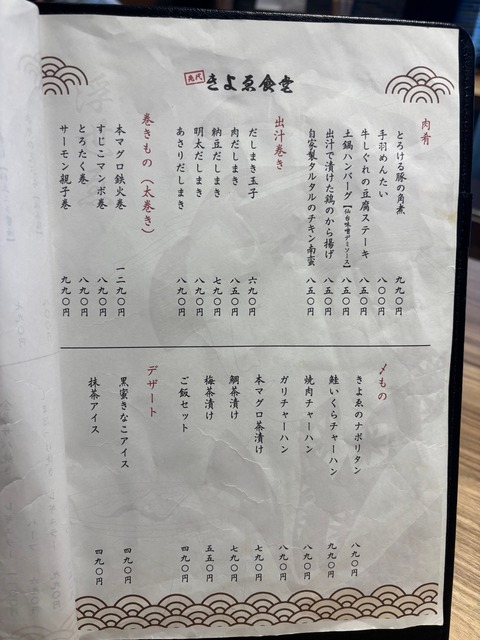 きよゑ食堂
肉肴
とろける豚の角煮 九九〇円
手羽めんたい 八〇〇円
牛しぐれの豆腐ステーキ 八五〇円
土鍋ハンバーグ【仙台味噌デミソース】 八五〇円
出汁で漬けた鶏のから揚げ 八五〇円
自家製タルタルのチキン南蛮 八五〇円
出汁巻き
だしまき玉子 六九〇円
肉だしまき 八五〇円
納豆だしまき 七九〇円
明太だしまき 八九〇円
あさりだしまき 八九〇円
巻きもの（太巻き）
本マグロ鉄火巻 一二九〇円
すじこマンボ巻 八九〇円
とろたく巻 八九〇円
サーモン親子巻 九九〇円
〆もの
きよゑのナポリタン 八九〇円
鮭いくらチャーハン 九九〇円
焼肉チャーハン 八九〇円
ガリチャーハン 八九〇円
本マグロ茶漬け 七九〇円
鯛茶漬け 七九〇円
梅茶漬け 五五〇円
ご飯セット 四九〇円
デザート
黒蜜きなこアイス 四九〇円
抹茶アイス 四九〇円